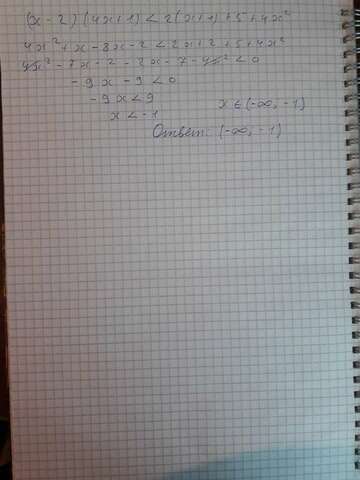 (x - 2)(4x+1) < 2(x+1)+5+4x²
4x²+x-8x-2 < 2x+2+5+4x²
4x²-7x-2-2x-7-4x² < 0
-9x-9<0
-9x<9
x ∈ (-∞, -1)
x < -1
Ответ: (-∞, -1)